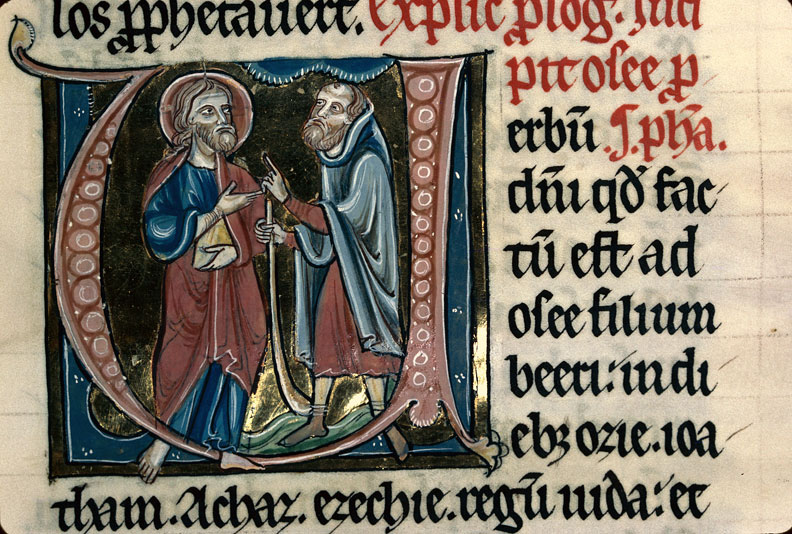 los ꝓphetauert. explic ꝓlog. Inci
pit osee ꝓ
erbū .I. pħa.
dn̄i qđ fac-
tū est ad
osee filium
beeri: in di
ebꝫ ozie. ioa
tham. Achaz. ezechie. regū iuda: et